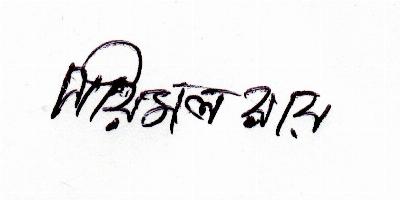 পরিমল রায়